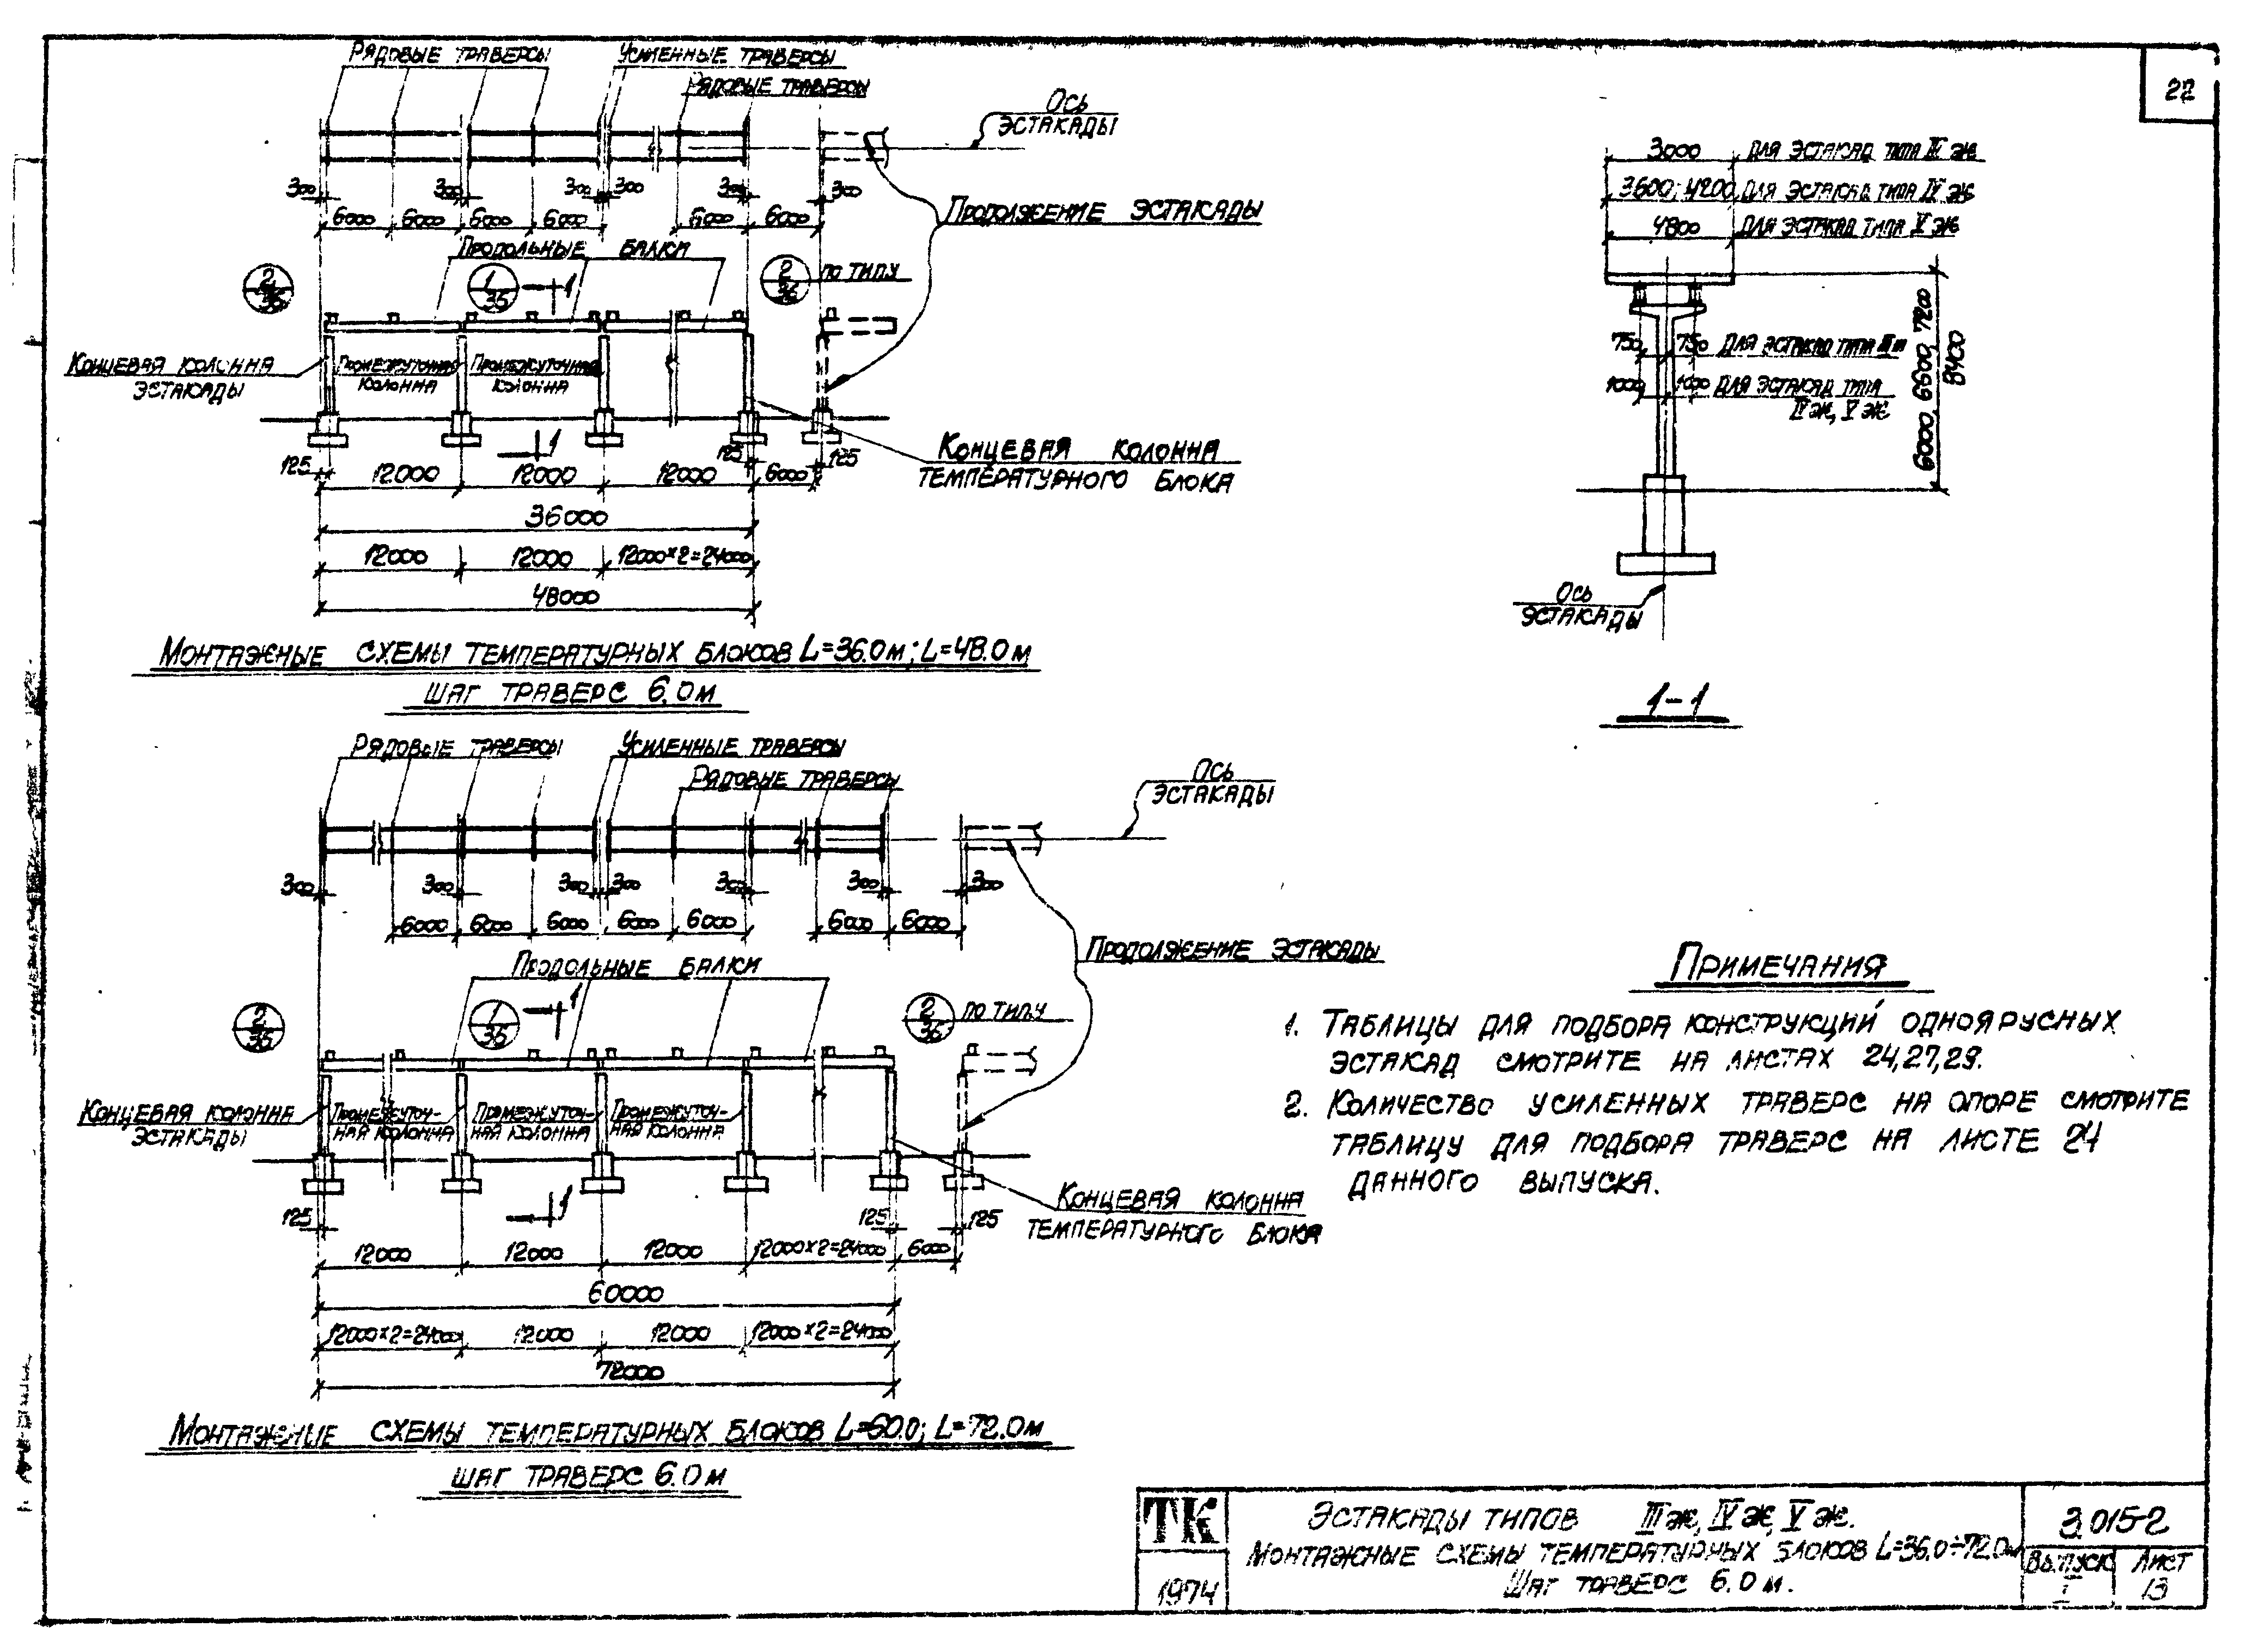 22
Рядовые траверсы
Усиленные траверсы
Рядовые траверсы
Ось
эстакады
300 300 300 300 300 300
6000 6000 6000 6000 6000 6000
Продолжение эстакады
Продольные балки
2
36
1
36
1
2
36
по типу
Концевая колонна
эстакады
Промежуточная
колонна
Промежуточная
колонна
1
Концевая колонна
температурного блока
125 125 125
12000 12000 12000 6000
36000
12000 12000 12000×2=24000
48000
Монтажные схемы температурных блоков L=36.0м; L=48.0м
шаг траверс 6.0м
3000 Для эстакад типа III ж
3600; 4200 Для эстакад типа IV ж
4800 Для эстакад типа V ж
750 750 Для эстакад типа III ж
1000 1000 Для эстакад типа
IV ж, V ж
6000, 6600, 7200
8400
Ось
эстакады
1-1
Рядовые траверсы
Усиленные траверсы
Рядовые траверсы
Ось
эстакады
300 300 300 300 300 300 300
6000 6000 6000 6000 6000 6000 6000
Продолжение эстакады
Продольные балки
2
36
1
36
1
2
36
по типу
Концевая колонна
эстакады
Промежуточ-
ная колонна
Промежуточ-
ная колонна
Промежуточ-
ная колонна
1
Концевая колонна
температурного блока
125 125 125
12000 12000 12000 12000×2=24000 6000
60000
12000×2=24000 12000 12000 12000×2=24000
72000
Монтажные схемы температурных блоков L=60.0; L=72.0м
шаг траверс 6.0м
Примечания
1. Таблицы для подбора конструкций одноярусных
эстакад смотрите на листах 24, 27, 29.
2. Количество усиленных траверс на опоре смотрите
таблицу для подбора траверс на листе 24
данного выпуска.
ТК
1974
Эстакады типов III ж, IV ж, V ж.
Монтажные схемы температурных блоков L=36.0÷72.0м
Шаг траверс 6.0м.
3.015-2
Выпуск
I
Лист
13